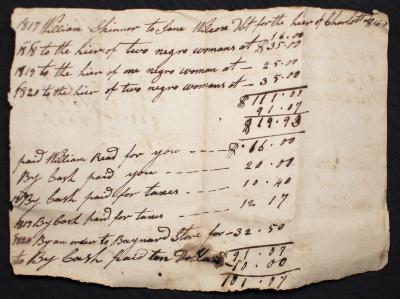 1817 William Skinner to Jane Wilson Dbt for the hier of Charlott $16.0
16.00
1818 to the hier of two negro womans at $35.00
1819 to the hier of one negro woman at — 25.00
1820 to the hier of two negro womans at — 35.00
$111.00
91.07
$19.93
paid William Read for you — $16.00
By Cash paid you — 20.00
By Cash paid for taxes — 10.40
1819 By Cash paid for taxes — 12 17
1820 By an order to Baynard Store for - 32.50
$91.07
to By Cash paid ten Dollars 10.00
101.07